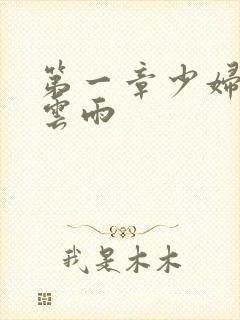 第一章少婦
雲雨
我是木木